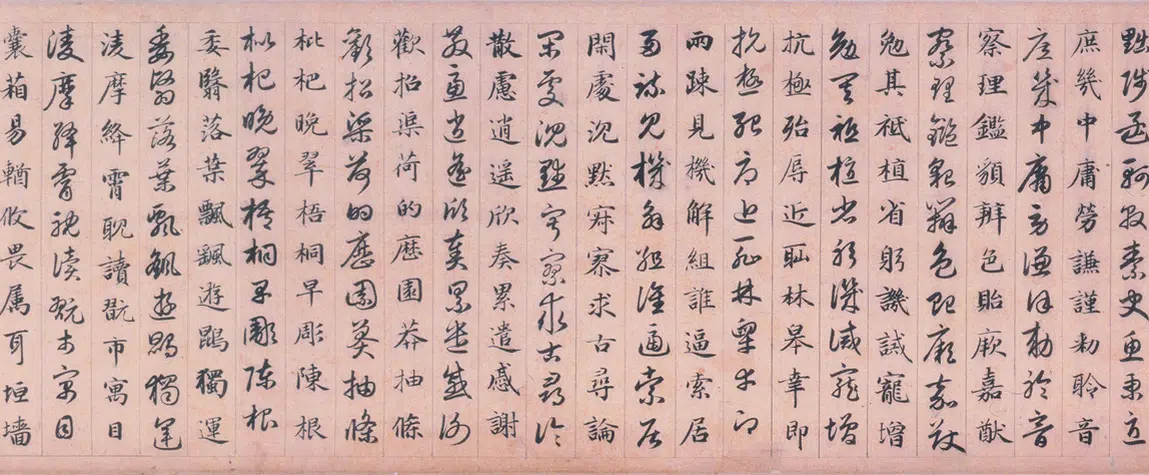 黜陟孟軻敦素史魚秉直
庶幾中庸勞謙謹勅聆音
庶幾中庸勞謙謹勅聆音
察理鑑貌辨色貽厥嘉猷
察理鑑貌辨色貽厥嘉猷
勉其祗植省躬譏誡寵增
勉其祗植省躬譏誡寵增
抗極殆辱近耻林皋幸即
抗極殆辱近耻林皋幸即
兩疎見機解組誰逼索居
兩疎見機解組誰逼索居
閑處沉默寂寥求古尋論
閑處沉默寂寥求古尋論
散慮逍遥欣奏累遣慼謝
散慮逍遥欣奏累遣慼謝
歡招渠荷的歷園莽抽條
歡招渠荷的歷園莽抽條
枇杷晚翠梧桐早彫陳根
枇杷晚翠梧桐早彫陳根
委翳落葉飄颻遊鵾獨運
委翳落葉飄颻遊鵾獨運
淩摩絳霄耽讀翫市寓目
淩摩絳霄耽讀翫市寓目
囊箱易輶攸畏属耳垣墻